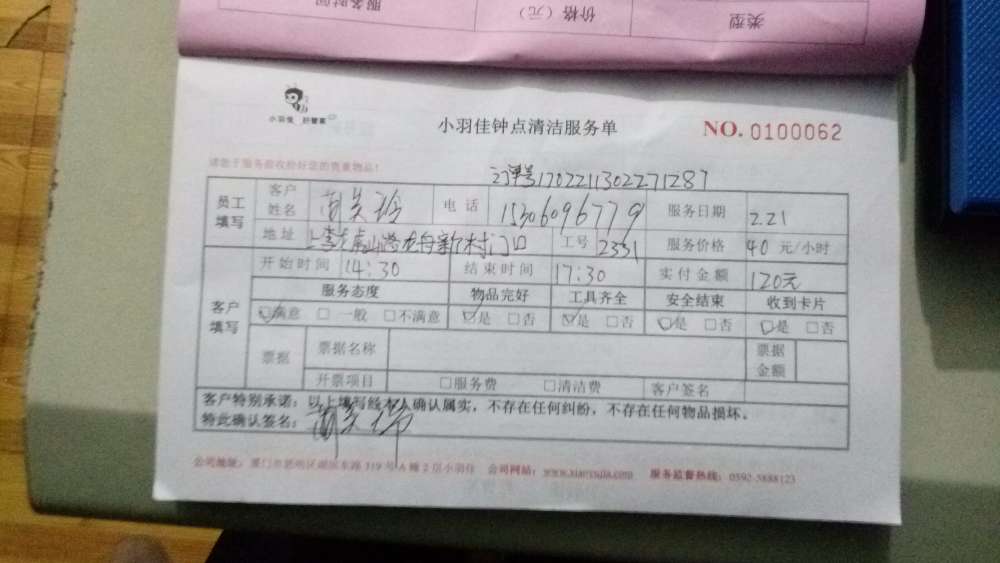 服务时间 价格（元） 类型
小羽佳 好管家
小羽佳钟点清洁服务单 NO. 0100062
请您于服务前收检好您的贵重物品！
订单号1702211302271287
员工填写 客户姓名 电话 15306096779 服务日期 2.21
地址 新村门口 工号 2331 服务价格 40 元/小时
开始时间 14:30 结束时间 17:30 实付金额 120元
客户填写 服务态度 物品完好 工具齐全 安全结束 收到卡片
☑满意 □ 一般 □不满意 ☑是 □否 ☑是 □否 ☑是 □否 ☑是 □否
票据 票据名称 票据金额
开票项目 □服务费 □清洁费 客户签名
客户特别承诺：以上填写经本人确认属实，不存在任何纠纷，不存在任何物品损坏。
特此确认签名：
公司地址：厦门市思明区湖滨东路 319 号 A 幢 2 层小羽佳 公司网站：www.xiaoyujia.com 服务监督热线：0592-5888123